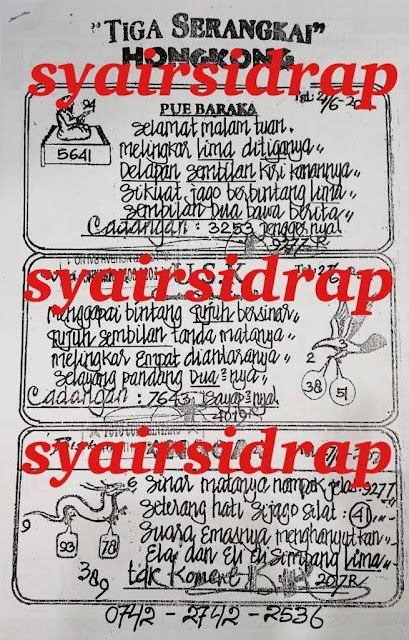 "TIGA SERANGKAI"
HONGKONG
syairsidrap
94
5641
PUE BARAKA
Selamat malam tuan
melingkar lima ditiganya
Delapan sembilan kiri kanannya
Sikuat jago berbintang lima
Sembilan Dua bawa berita
Cadangan : 3253
9277.R
syairsidrap
menggapai bintang Tujuh bersinar
Tujuh sembilan tanda matanya
melingkar Empat diantaranya
Selayang pandang Dua²nya
Cadangan : 7643
4019R
2
3
38
51
syairsidrap
6
9
93
78
389
Sinar matanya nampak jelas 9277
Seterang hati Sijago Silat : 41
Suara Emasnya menghanyutkan
Ela dan Eli di Simpang Lima
tdk koment
207R
0742 - 2742 - 2536